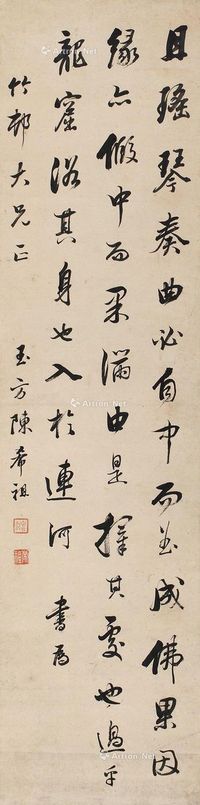 且瑤琴奏曲必自中而出成佛果因
緣亦假中而果滿由是擇其處也過乎
龍窟浴其身也入於連河 書為
竹邨大兄正
玉方陳希祖